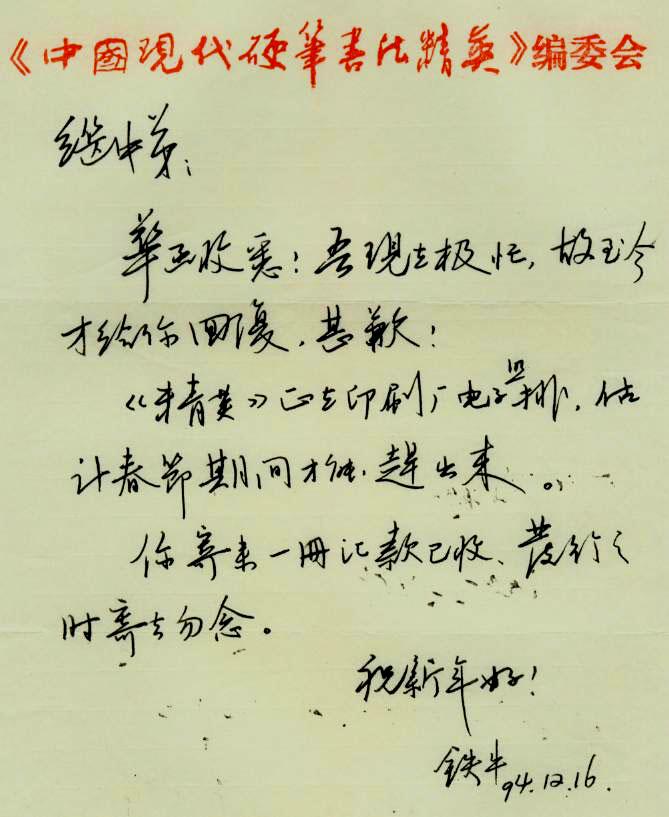 《中國現代硬筆書法精英》编委会
继中弟：
華函收悉！吾現在极忙，故至今
才给你回復，甚歉！
《精英》正在印刷厂电子照排，估
计春節期间才能趕出来。
你寄来一冊汇款已收、發行之
时寄去勿念。
祝新年好！
鉄牛94.12.16.